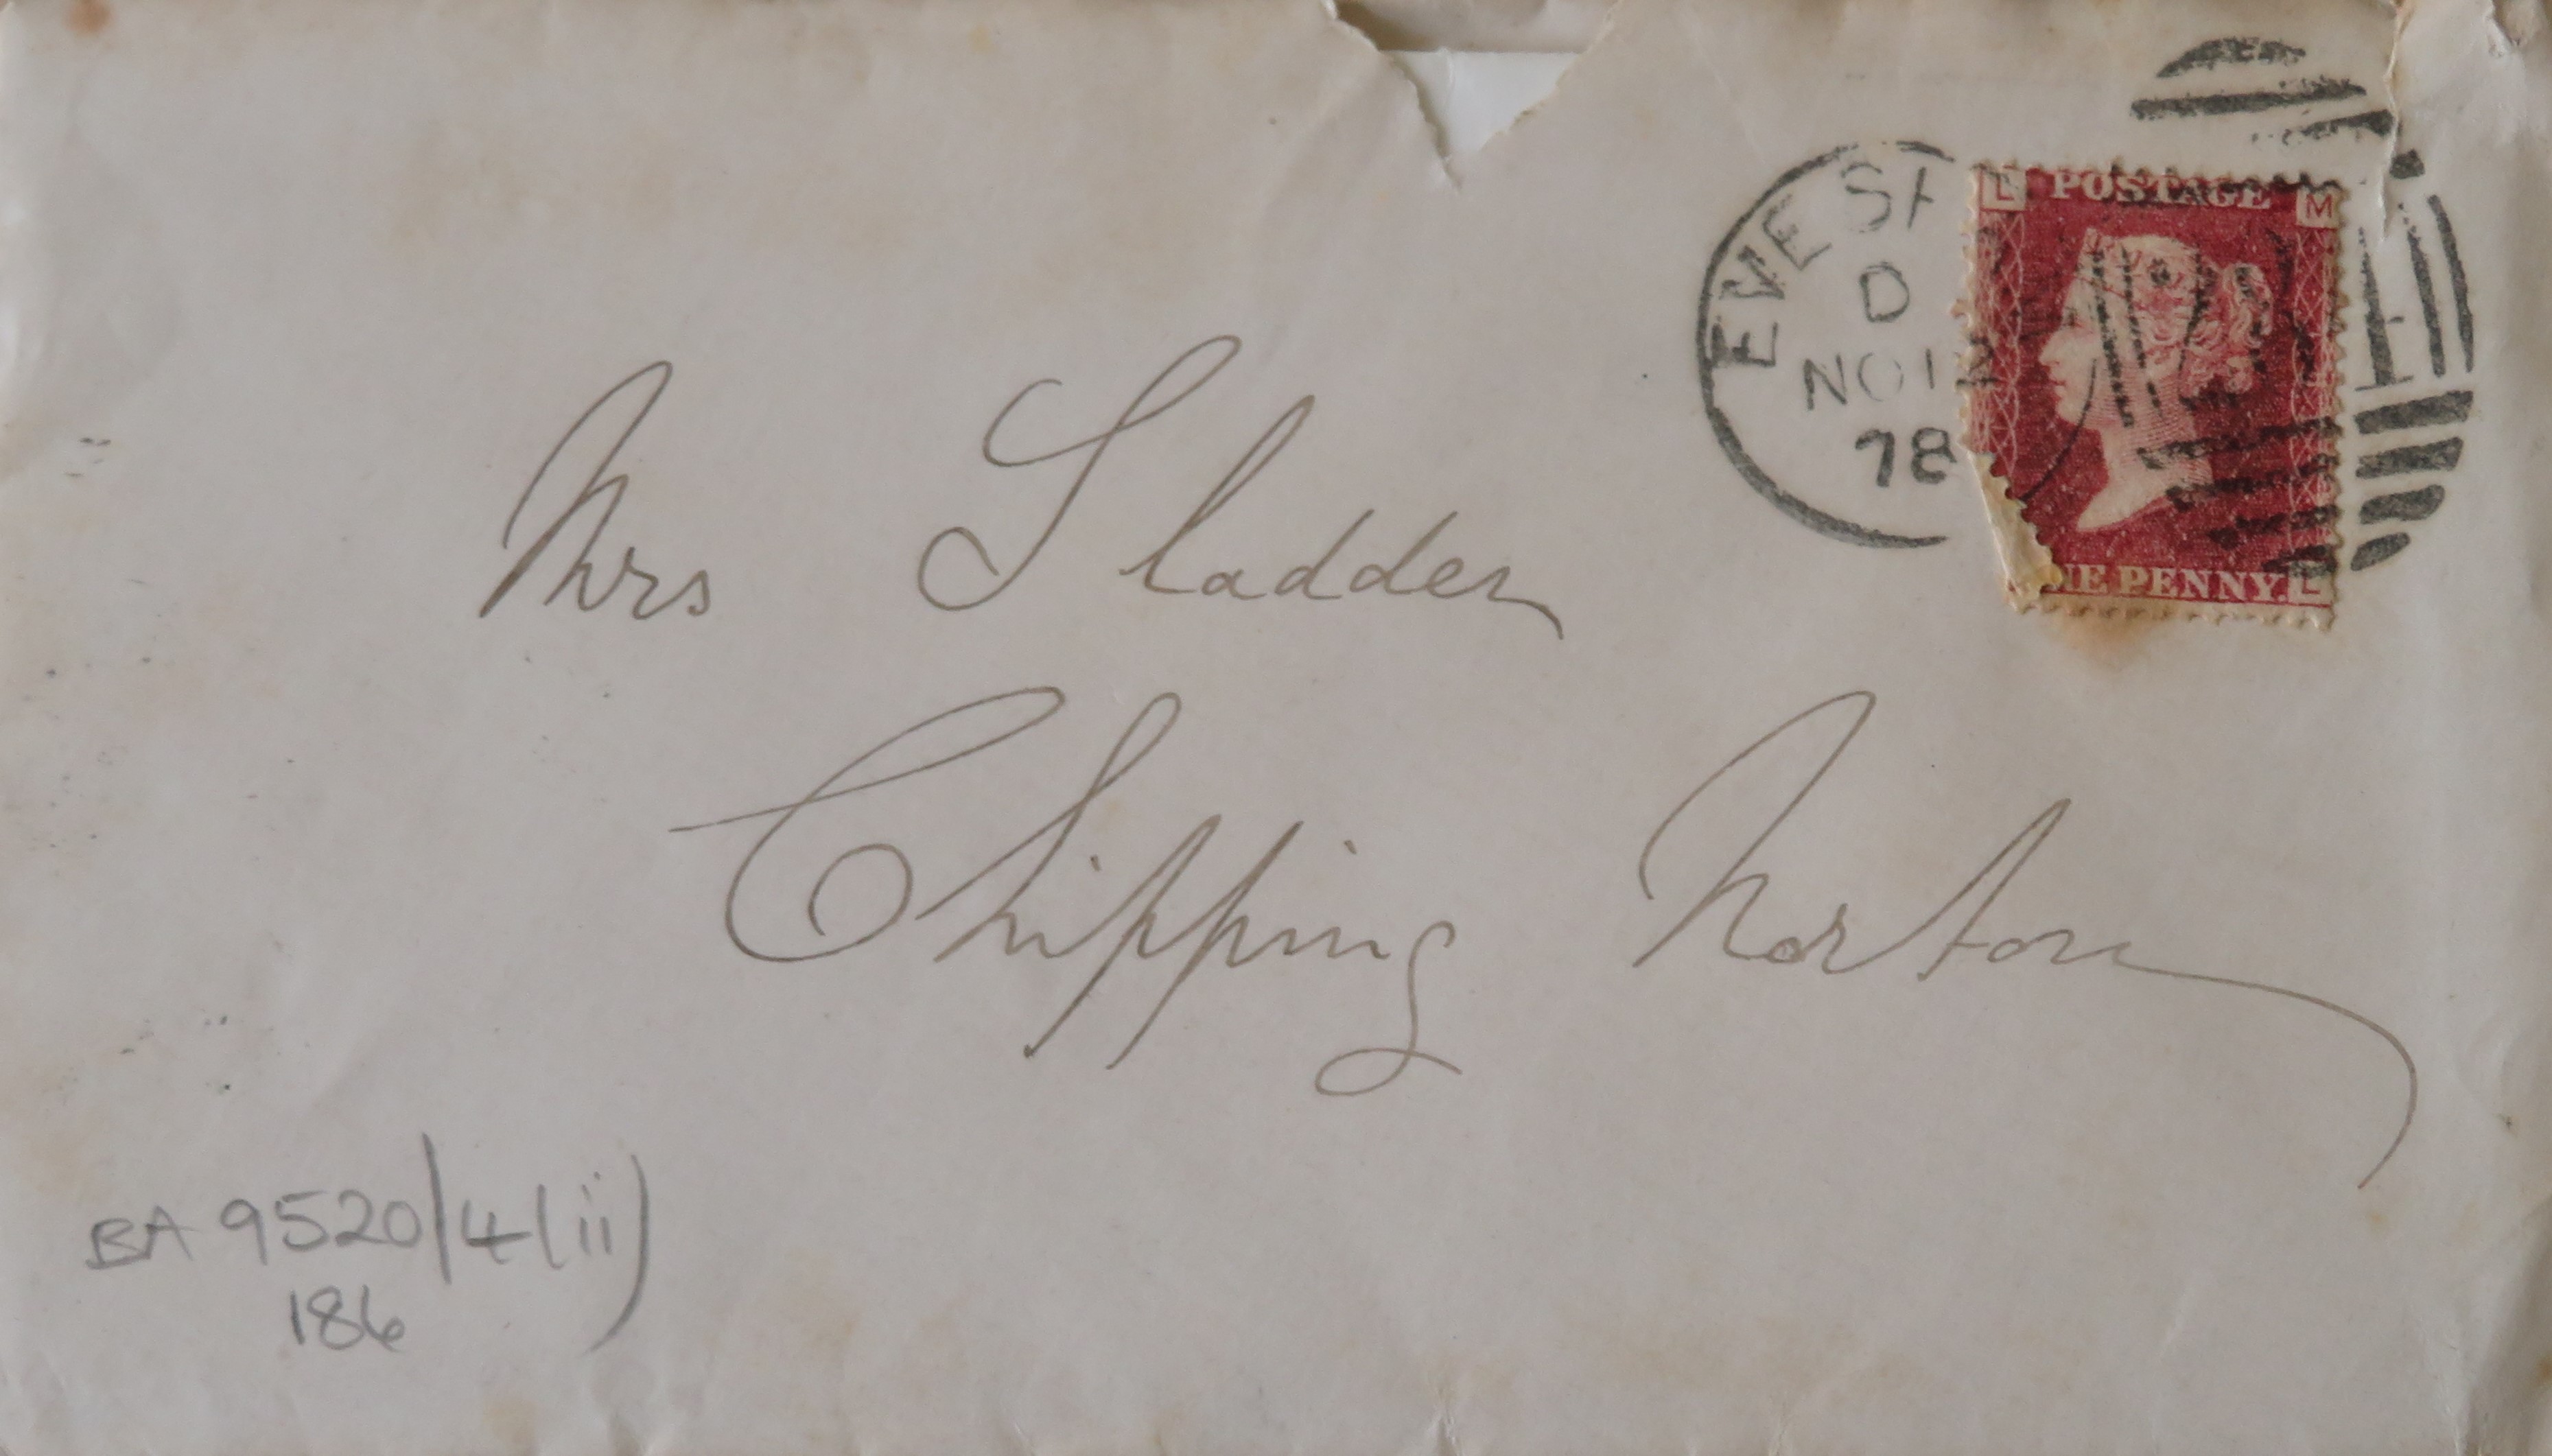 EVESH
D
NO
78
L POSTAGE M
NE PENNY. L
Mrs Sladden
Chipping Norton
BA 9520/4(ii)
186